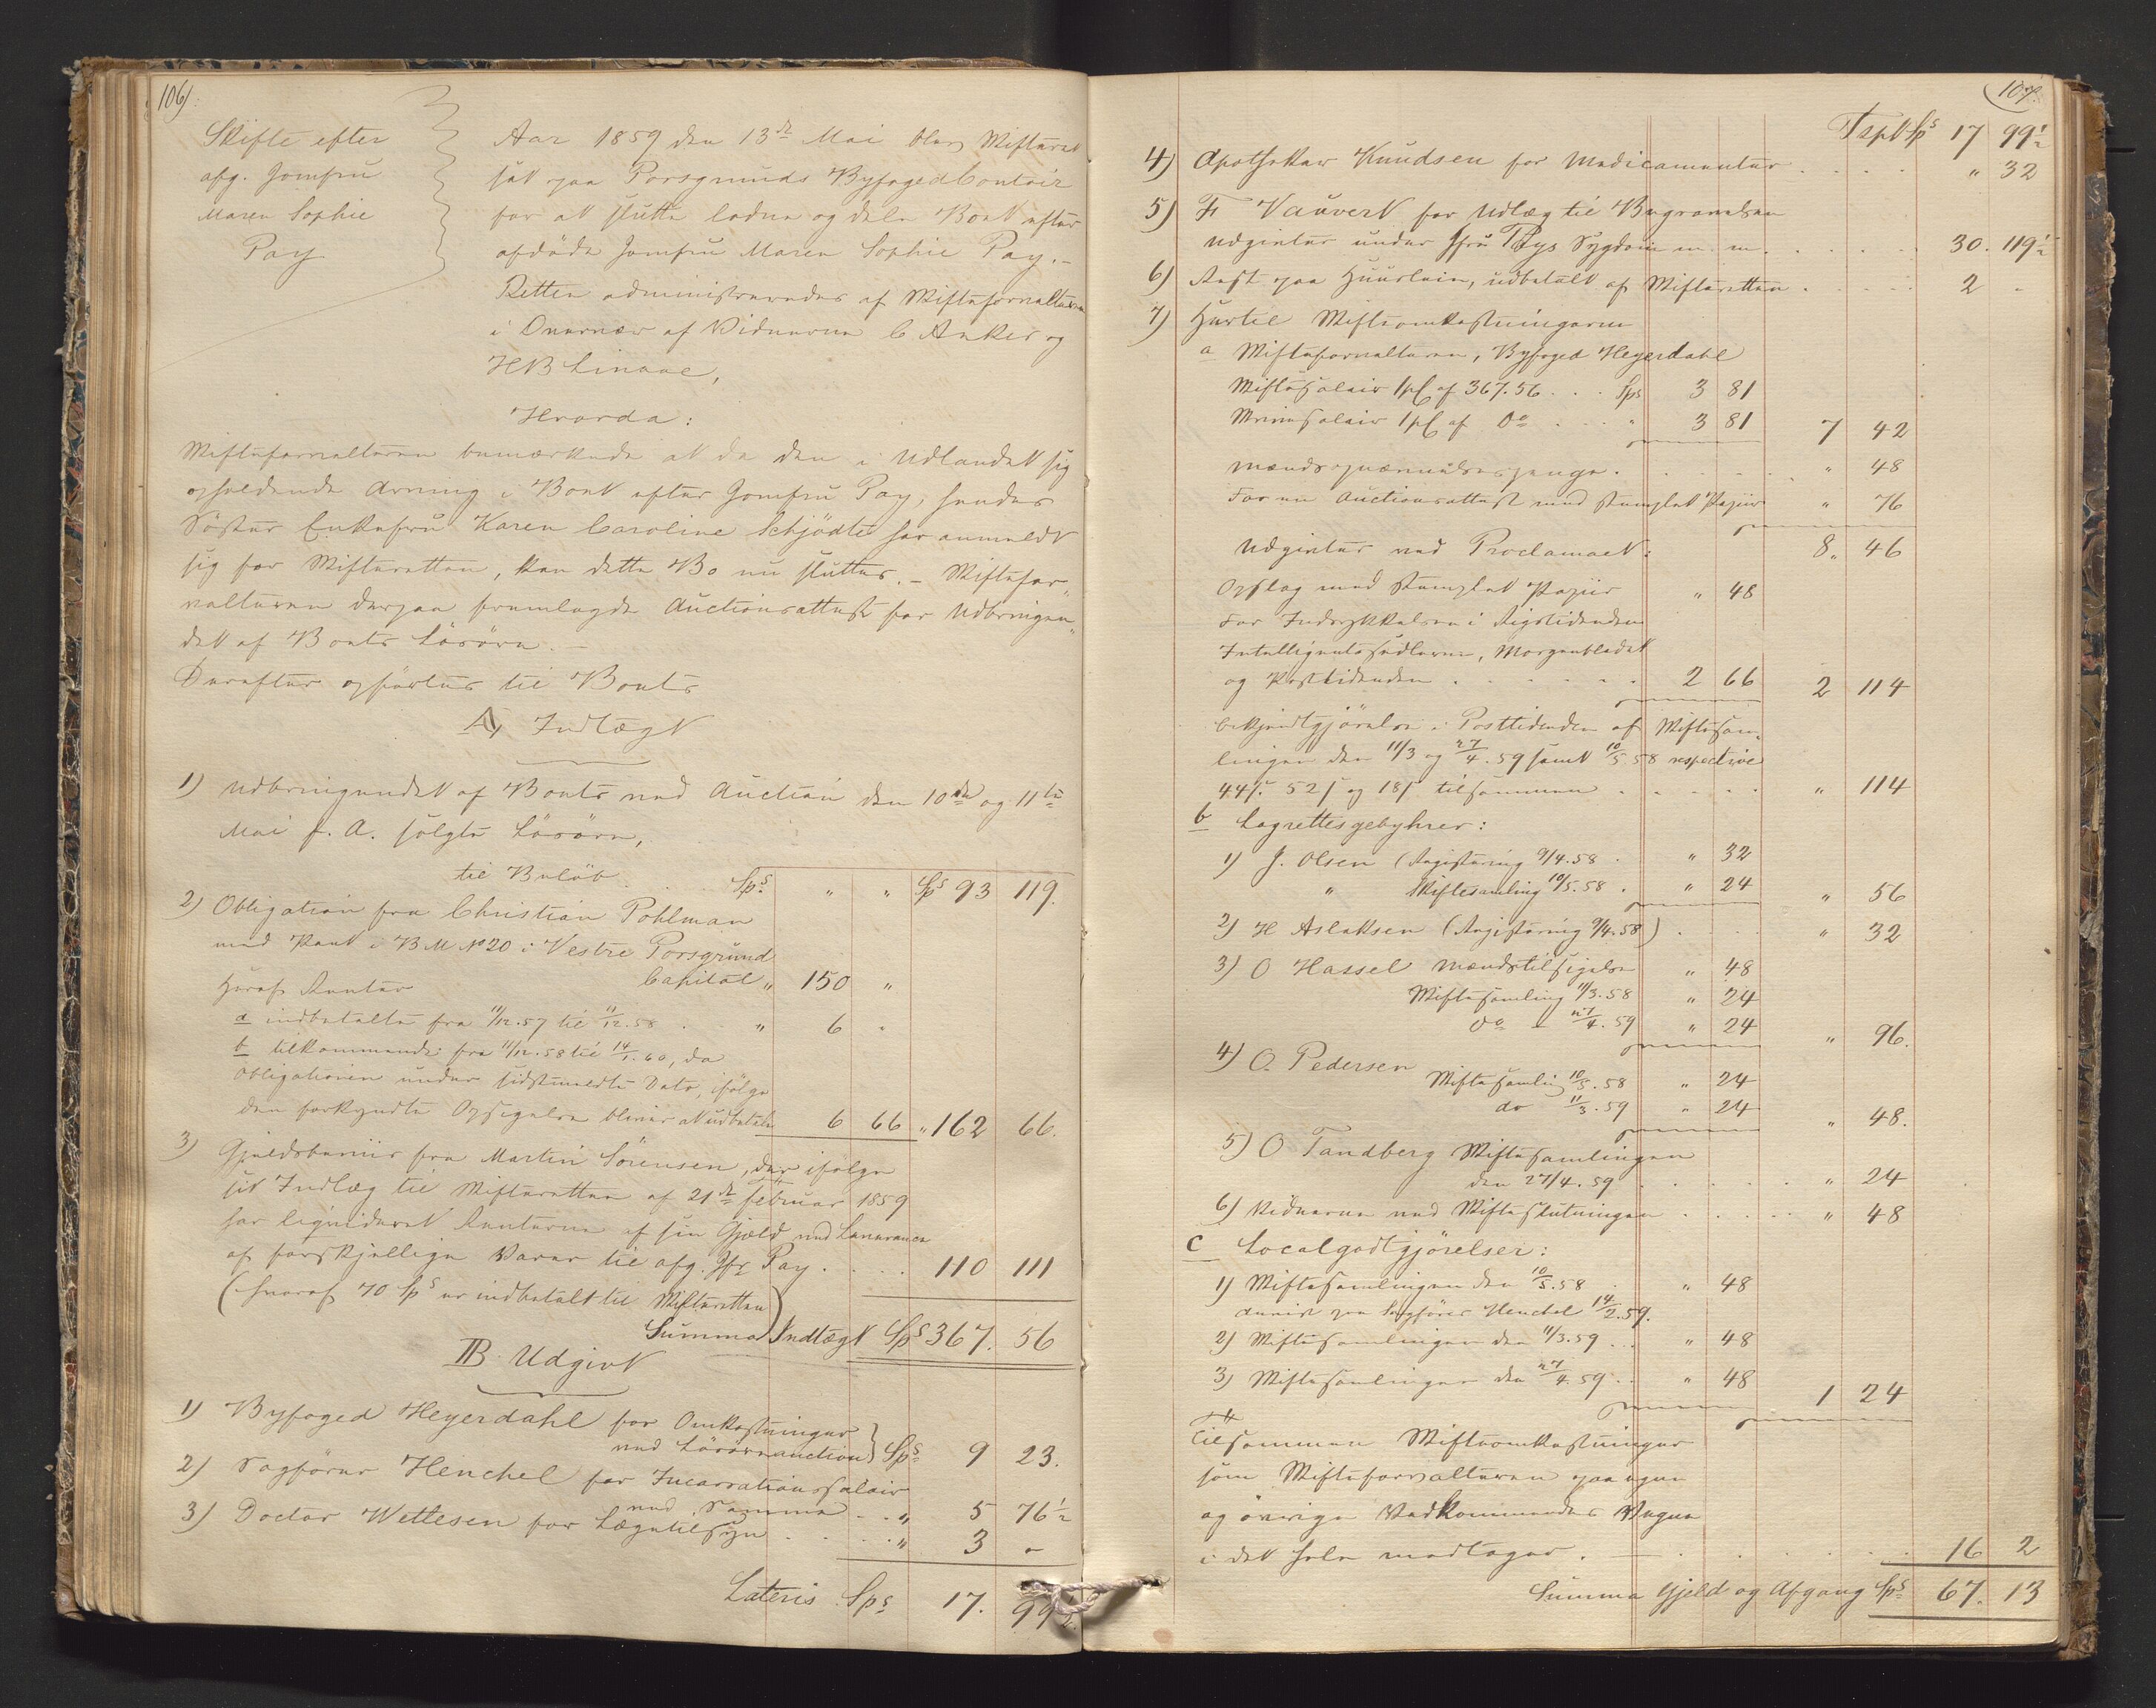 106)
Skifte efter
afg. Jomfru
Maren Sophie
Pay
Aar 1859 den 13de Mai blev Skifteret
sat paa Porsgrunds ByfogedContoir
for at slutte lodne og dele Boet efter
afdöde Jomfru Maren Sophie Pay. –
Retten administreredes af Skifteforvalteren
i Overvær af Vidnerne C Anker og
HB Linaae,
Hvorda:
Skifteforvalteren bemærkede at da den i Udlandet sig
opholdende Arving i Boet efter Jomfru Pay, hendes
Söster Enkefru Karen Caroline Schjödte har anmeldt
sig for Skifteretten, kan dette Bo nu sluttes. – Skiftefor-
valteren derpaa fremlagde Auctionsattest for Udbringen-
det af Boets Lösöre. –
Derefter opförtes til Boets
A, Indtægt
1) Udbringendet af Boets ved Auction den 10de og 11te
Mai d. A. solgte Lösöre,
til Belöb . . Sps " " Sps 93 119.
2) Obligation fra Christian Pohlman
med Pant i BM No 20 i Vestre Porsgrund
Capital " 150 "
Heraf Renter
a indbetalte fra 11/12.57 til 11/12.58 . . " 6 "
b tilkommende fra 11/12.58 til 14/1.60, da
Obligationen under sidstmeldte Dato, ifölge
den forkyndte Opsigelse bliver at udbetale 6 66 " 162 66.
3) Gjeldsbeviis fra Martin Sörensen, der ifölge
sit Indlæg til Skifteretten af 21de Februar 1859
har liqvideret Renterne af sin Gjeld ved Leverance
af forskjellige Varer til afg. Jfr Pay . . . . 110 111
(hvoraf 70 Sps er indbetalt til Skifteretten)
Summa Indtægt Sps 367. 56
B. Udgivt
1) Byfoged Heyerdahl for Omkostninger
ved Lösöreauction} Sps 9 23.
2) Sagförer Henchel for Incassationssalair
ved Samme . . " 5 76½
3) Doctor Wettesen for Lægetilsyn . . . . " 3 "
Lateris Sps 17. 99½.
107.
Tspt Sps 17 99½
4) Apotheker Knudsen for Medicamenter . . . . " 32
5) F Vauvert for Udlæg til Begravelsen
Udgivter under Jfru Pays Sygdom m. m. . . . . 30. 119½
6) Rest paa Huusleie, udbetalt af Skifteretten . . . . 2 "
7) Hertil Skifteomkostningerne
a Skifteforvalteren, Byfoged Heyerdahl
Skiftesalair 1pC af 367.56 . . . Sps 3 81
Skriversalair 1pC af Do . . . " 3 81 7 42
Mændsopnævnelsespenge . . . . . " 48
For en Auctionsattest med stemplet Papiir " 76
8. 46
Udgivter ved Proclamaet:
Opslag med stemplet Papiir " 48
For Indrykkelsen i Rigstidenden
Intelligentssedlerne, Morgenbladet
og Posttidenden . . . . . . 2 66 2 114
Bekjendtgjörelse i Posttidenden af Skiftesam-
lingen den 11/3 og 27/4.59 samt 10/5 58 respective
44ſ. 52ſ og 18ſ tilsammen . . . . . " 114
b Lagrettesgebyhrer:
1) J. Olsen (Registering 9/4.58 . " 32
" Skiftesamling 10/5.58 . " 24 " 56
2) H Aslaksen (Registering 9/4.58) . . . " 32
3) O Hassel Mændstilsigelse " 48
Skiftesamling 11/3.58 " 24
do – 27/4.59 " 24 " 96.
4) O. Pedersen
Skiftesamling 10/5.58 " 24
do 11/3.59 " 24 " 48.
5) O Tandberg Skiftesamlingen
den 27/4.59 . . . . " 24
6) Vidnerne ved Skifteslutningen . . . . " 48
C Localgodtgjörelser:
1) Skiftesamlingen den 10/5.58 . " 48
Anviist paa Sagförer Henchel 14/2.59.
2) Skiftesamlingen den 11/3.59 . . " 48
3) Skiftesamlingen den 27/4.59 . . " 48 1 24
Tilsammen Skifteomkostninger
som Skifteforvalteren paa egne
og övrige Vedkommendes Vegne
i det hele modtager . – . . . . . 16 2
Summa Gjeld og Afgang Sps 67. 13